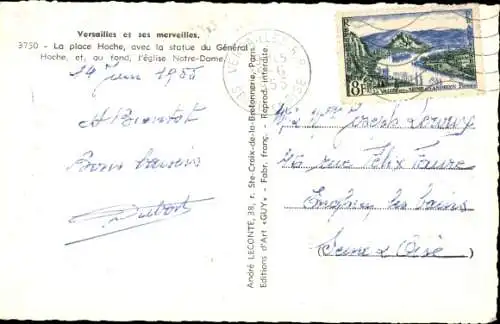 Versailles et ses merveilles.
3750 - La place Hoche, avec la statue du Général
Hoche, et, au fond, l'église Notre-Dame
14 Juin 1955
A Bientôt
Bons baisers
Dubois
André LECONTE, 38, r. Ste-Croix-de-la-Bretonnerie, Paris.
Editions d'Art «GUY» - Fabr. franç. - Reprod. interdite.
VERSAILLES R.P.
8F
Joseph
26 rue Félix Faure
Enghien les bains
Seine & Oise